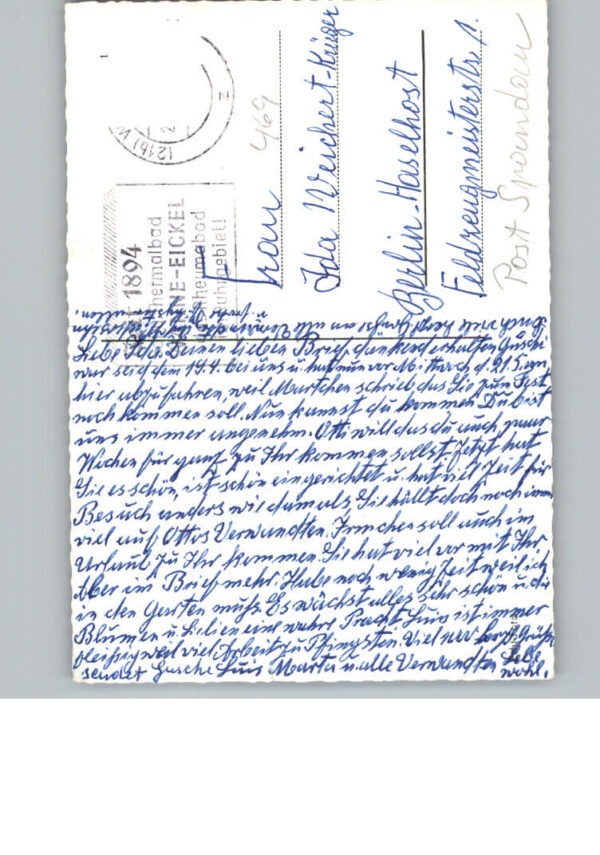 1
(21b) W
2
z
seit 1894
Thermalbad
WANNE-EICKEL
Rheumabad
Ruhrgebiet!
Frau 469
Ida Weichert-Krüger
Berlin-Haselhost
Feldzeugmeisterstr. 1.
Post Spandau
Liebe Ida. Deinen lieben Brief dankend erhalten Gusche
war seid dem 19.4. bei uns u. hat nun vor Mittwoch d. 21.5. von
hier abzufahren, weil Martchen schrieb das Sie zum Fest
noch kommen soll. Nun kannst du kommen. Du bist
uns immer angenehm. Otti will das du auch paar
Wochen für ganz zu Ihr kommen sollst. Jetzt hat
Sie es schön, ist schön eingerichtet u. hat viel Zeit für
Besuch anders wie damals, Sie hällt doch noch immer
viel auf Ottos Verwandten. Irmchen soll auch im
Urlaub zu Ihr kommen. Sie hat viel vor mit Ihr
Aber im Brief mehr. Habe noch wenig Zeit weil ich
in den Garten muß. Es wächst alles sehr schön u. die
Blumen u. Lielien eine wahre Pracht. Luis ist immer
fleißig weil viel Arbeit zu Pfingsten. Viel herzl. Grüße
sendet Gusche Luis Marta u. alle Verwandten Lebe
wohl.